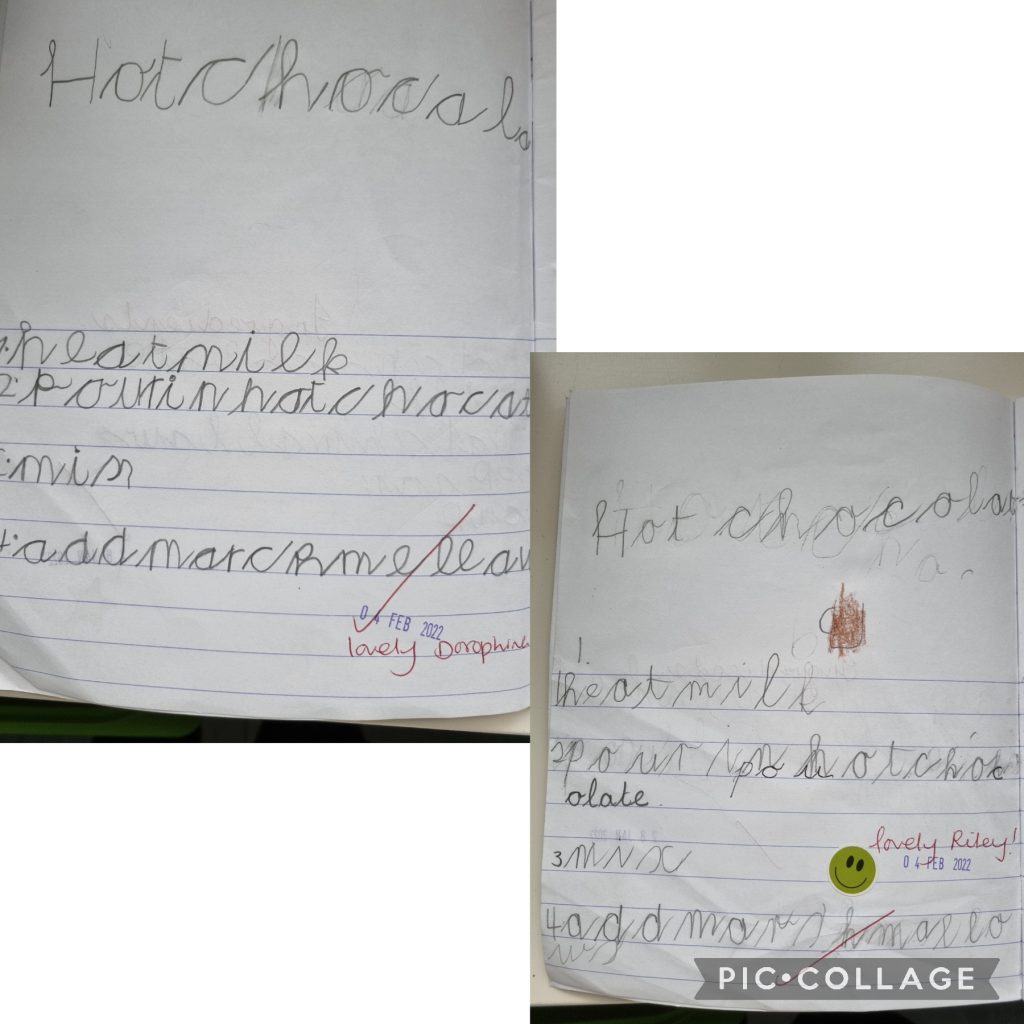 Hot chocalo
1.heat milk
2.pour in hot chocat
:mix
4.add marchmellau
04 FEB 2022
lovely Dorophina
Hot chocolat
1.
1heat milk
2pour in hot choc
olate.
lovely Riley!
04 FEB 2022
3mix
4add marshmallo
ws
PIC•COLLAGE